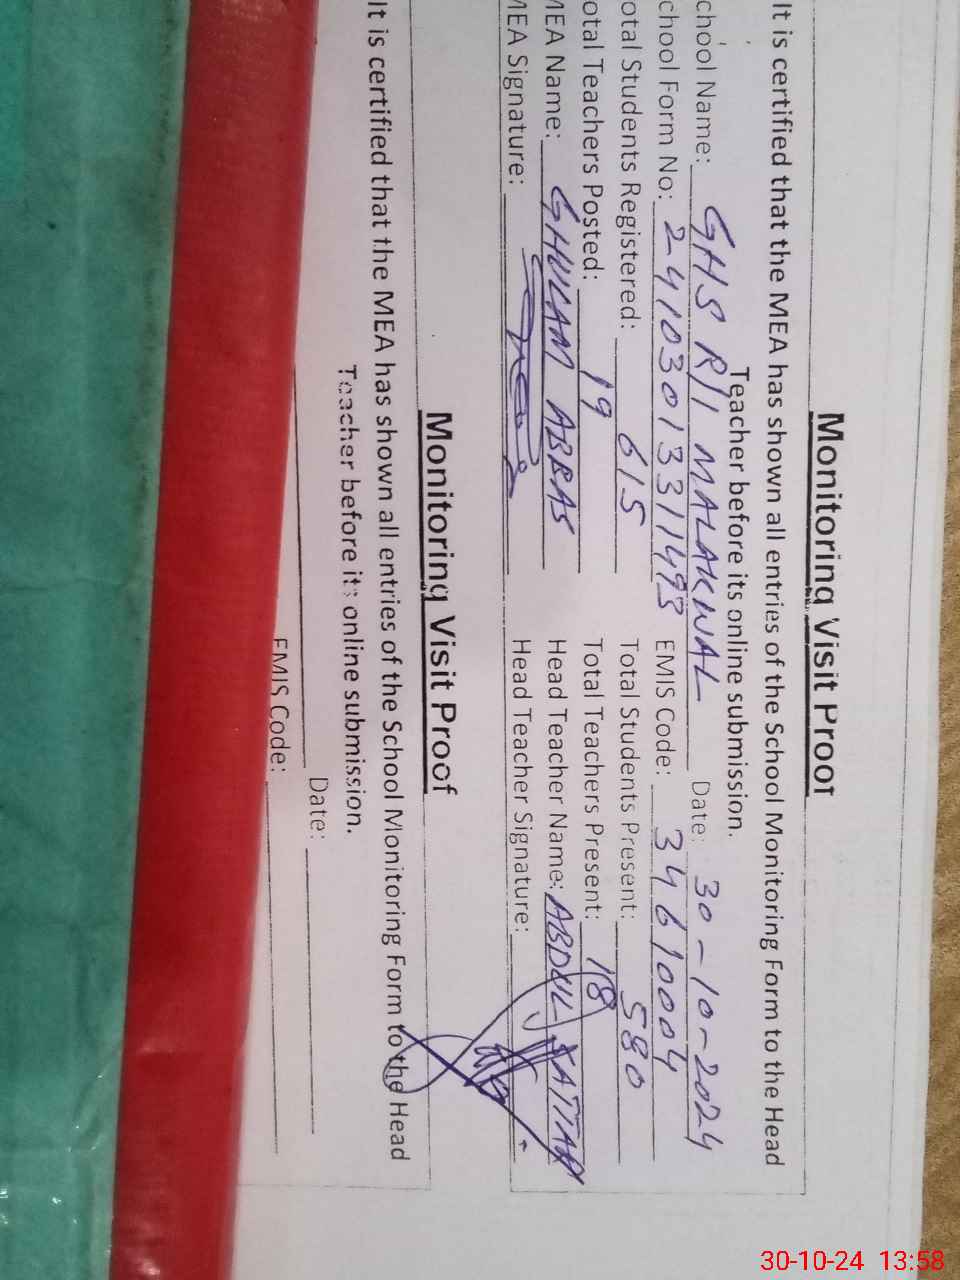 Monitoring Visit Proof
It is certified that the MEA has shown all entries of the School Monitoring Form to the Head
Teacher before its online submission.
chool Name: GHS R/1 MALAKWAL Date: 30-10-2024
chool Form No: 24103013311493 EMIS Code: 34610004
otal Students Registered: 615 Total Students Present: 580
otal Teachers Posted: 19 Total Teachers Present: 18
MEA Name: GHULAM ABBAS Head Teacher Name: ABDUL SATTAR
MEA Signature: Head Teacher Signature:
Monitoring Visit Proof
It is certified that the MEA has shown all entries of the School Monitoring Form to the Head
Teacher before its online submission.
Date:
EMIS Code:
30-10-24 13:58